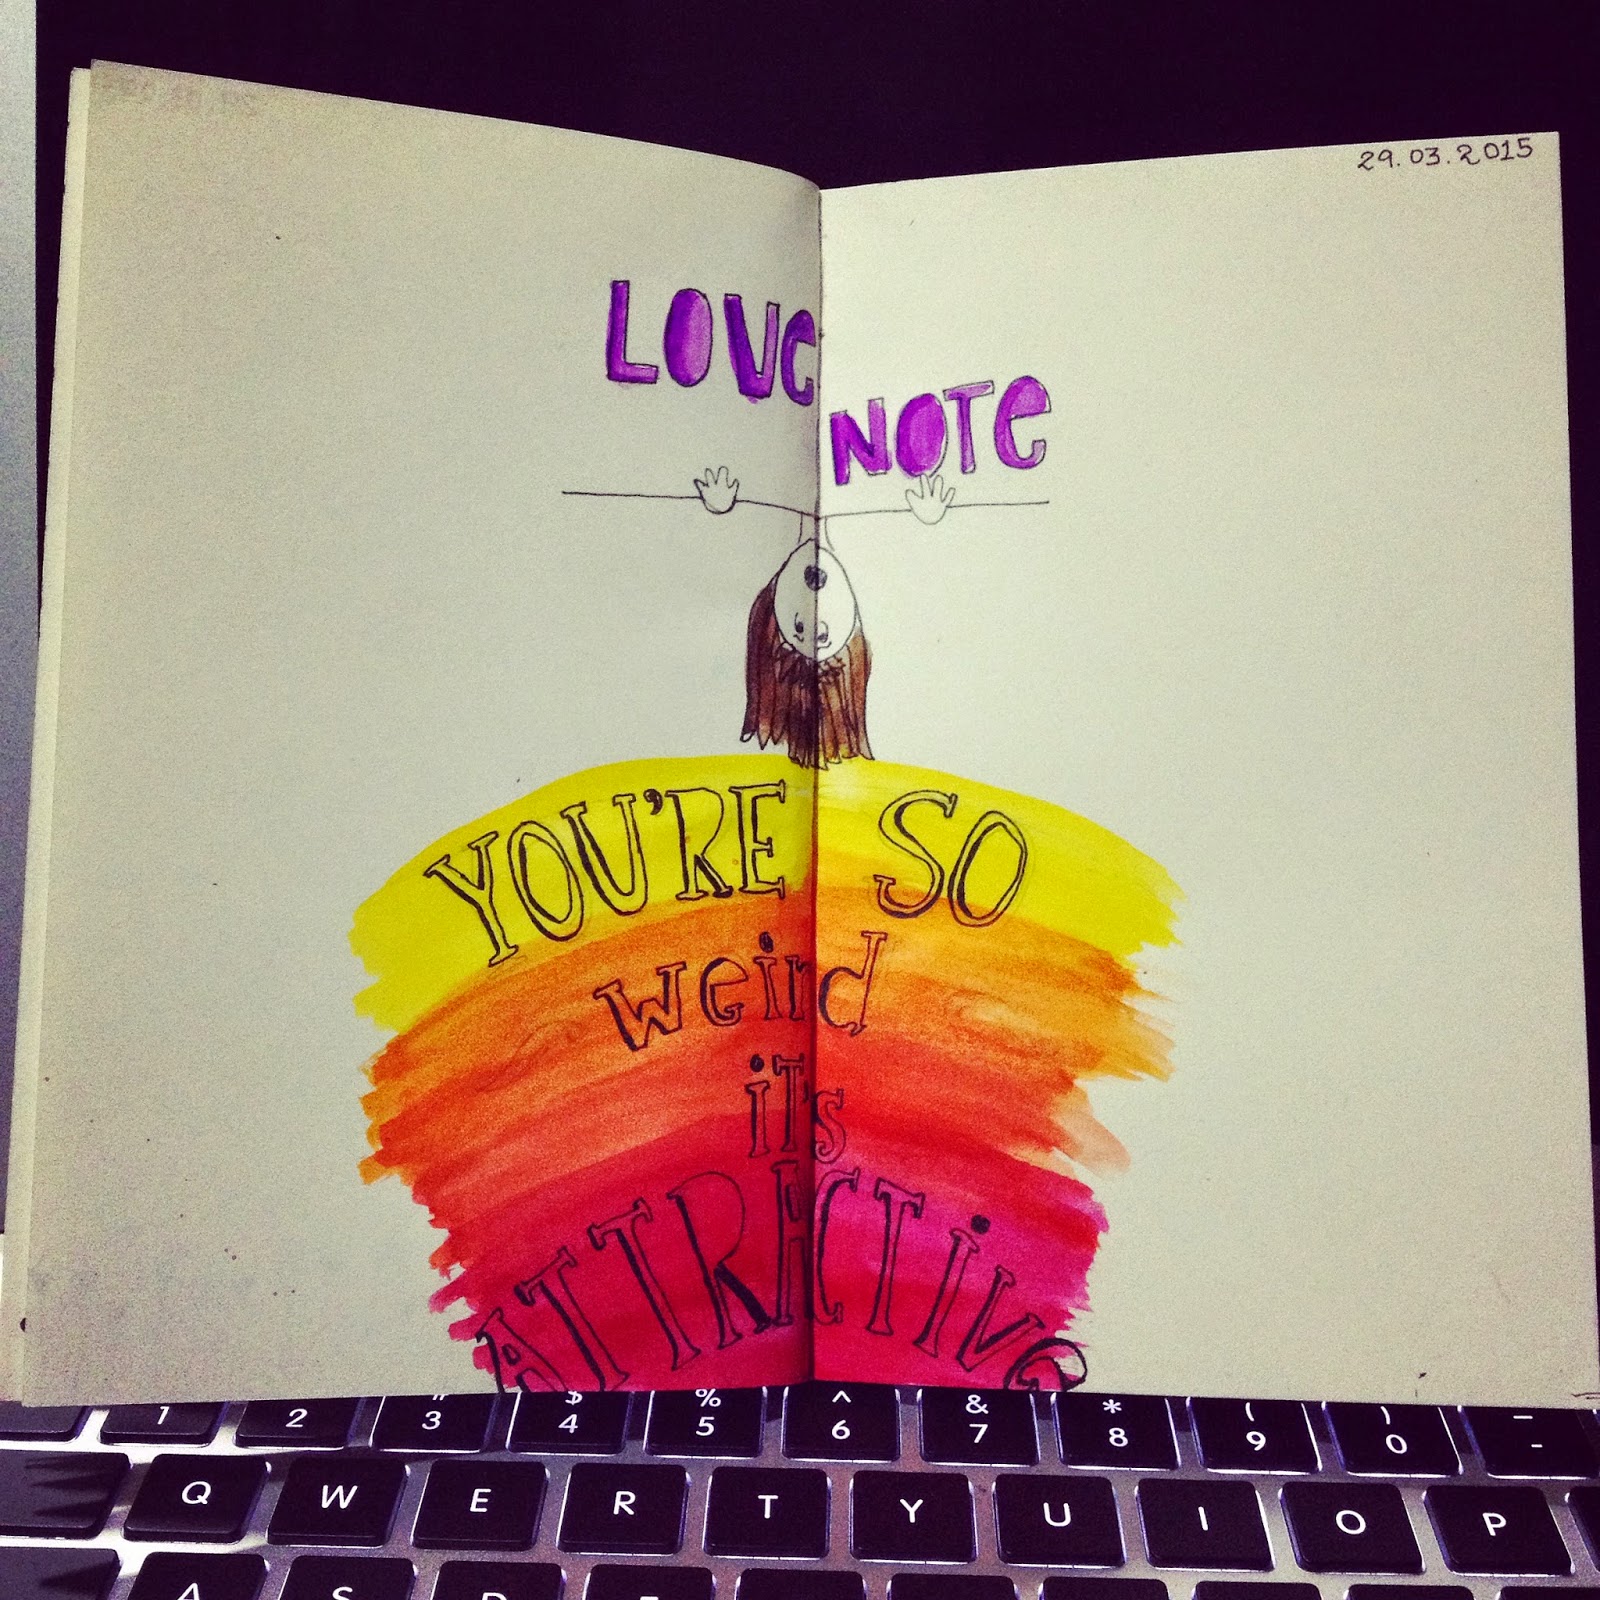 29.03.2015
LOVe
NOTe
YOU'RE SO
weird
iT's
ATTRACTive
# $ % ^ & * ( ) _
1 2 3 4 5 6 7 8 9 0 -
Q W E R T Y U I O P
A S D